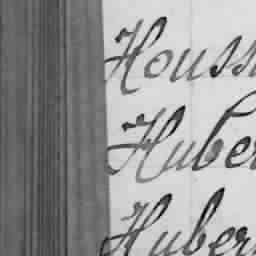 Houss
Huber
Huber